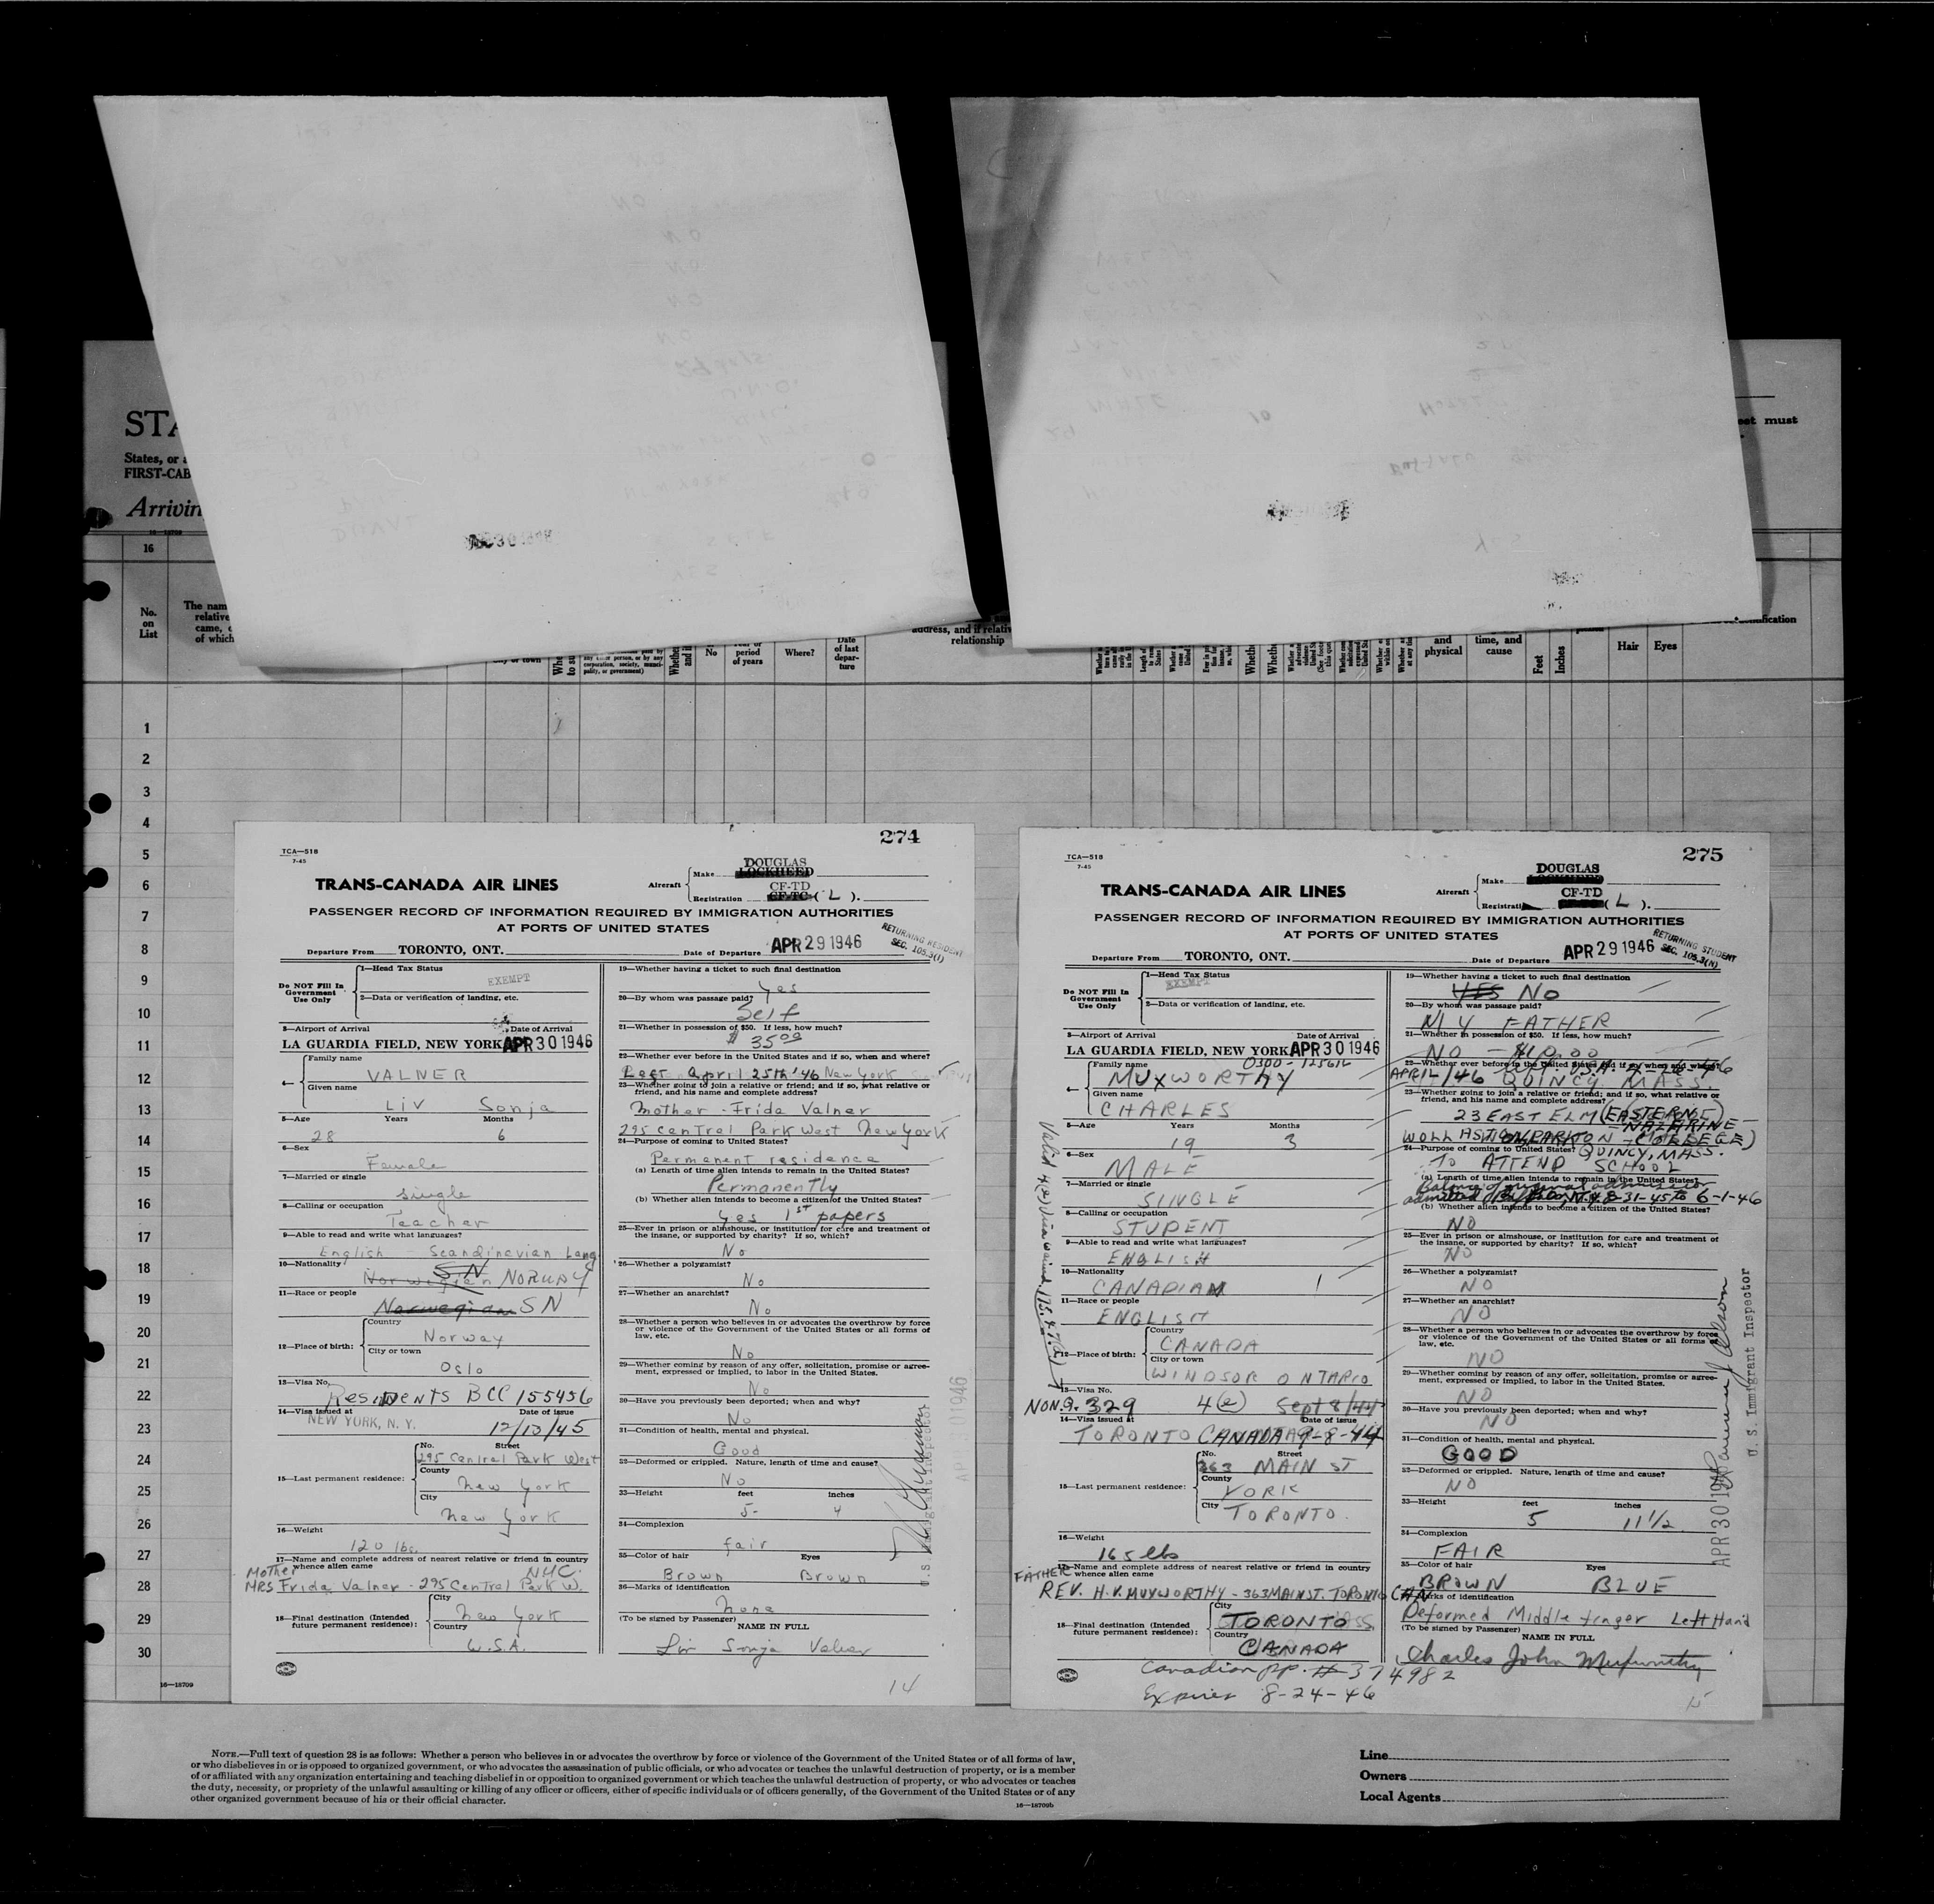 STA
States, or a
FIRST-CAB
Arrivin
16—18709
eet must
16
No.
on
List
The nam
relative
came, o
of which
city or town
No
period
of years
Where?
Date
of last
depar-
ture
address, and if relativ
relationship
and
physical
time, and
cause
Feet
Inches
Hair
Eyes
1
2
3
4
5
6
7
8
9
10
11
12
13
14
15
16
17
18
19
20
21
22
23
24
25
26
27
28
29
30
16—18709
274
TCA—518
7-45
TRANS-CANADA AIR LINES
Aircraft
Make DOUGLAS
LOCKHEED
Registration CF-TD
CF-TC ( L ).
PASSENGER RECORD OF INFORMATION REQUIRED BY IMMIGRATION AUTHORITIES
AT PORTS OF UNITED STATES
Departure From TORONTO, ONT. Date of Departure APR 29 1946
RETURNING RESIDENT
SEC. 105.3(I)
Do NOT Fill In
Government
Use Only
1—Head Tax Status
EXEMPT
2—Data or verification of landing, etc.
3—Airport of Arrival Date of Arrival
LA GUARDIA FIELD, NEW YORK APR 30 1946
4—
Family name
VALNER
Given name
Liv Sonja
5—Age Years Months
28 6
6—Sex
Female
7—Married or single
Single
8—Calling or occupation
Teacher
9—Able to read and write what languages?
English - Scandinavian Lang
10—Nationality
Norwegian SN NORWAY
11—Race or people
Norwegian SN
12—Place of birth:
Country
Norway
City or town
Oslo
13—Visa No.
Residents BCC 155456
14—Visa issued at Date of issue
NEW YORK, N. Y. 12/13/45
15—Last permanent residence:
No. Street
295 Central Park West
County
New York
City
New York
16—Weight
120 lbs.
17—Name and complete address of nearest relative or friend in country
whence alien came
Mother NYC.
MRS Frida Valner - 295 Central Park W.
18—Final destination (Intended
future permanent residence):
City
New York
Country
U.S.A.
19—Whether having a ticket to such final destination
Yes
20—By whom was passage paid?
Self
21—Whether in possession of $50. If less, how much?
$ 35.00
22—Whether ever before in the United States and if so, when and where?
Left April 25th '46 New York
23—Whether going to join a relative or friend; and if so, what relative or
friend, and his name and complete address?
Mother - Frida Valner
295 Central Park West New York
24—Purpose of coming to United States?
Permanent residence
(a) Length of time alien intends to remain in the United States?
Permanently
(b) Whether alien intends to become a citizen of the United States?
Yes 1st papers
25—Ever in prison or almshouse, or institution for care and treatment of
the insane, or supported by charity? If so, which?
No
26—Whether a polygamist?
No
27—Whether an anarchist?
No
28—Whether a person who believes in or advocates the overthrow by force
or violence of the Government of the United States or all forms of
law, etc.
No
29—Whether coming by reason of any offer, solicitation, promise or agree-
ment, expressed or implied, to labor in the United States.
No
30—Have you previously been deported; when and why?
No
31—Condition of health, mental and physical.
Good
32—Deformed or crippled. Nature, length of time and cause?
No
33—Height feet inches
5 - 4
34—Complexion
fair
35—Color of hair Eyes
Brown Brown
36—Marks of identification
None
(To be signed by Passenger) NAME IN FULL
Liv Sonja Valner
14
275
TCA—518
7-45
TRANS-CANADA AIR LINES
Aircraft
Make DOUGLAS
Registration CF-TD
( L ).
PASSENGER RECORD OF INFORMATION REQUIRED BY IMMIGRATION AUTHORITIES
AT PORTS OF UNITED STATES
Departure From TORONTO, ONT. Date of Departure APR 29 1946
RETURNING STUDENT
SEC. 105.3(N)
Do NOT Fill In
Government
Use Only
1—Head Tax Status
EXEMPT
2—Data or verification of landing, etc.
3—Airport of Arrival Date of Arrival
LA GUARDIA FIELD, NEW YORK APR 30 1946
4—
Family name 0300-125612
MUXWORTHY
Given name
CHARLES
5—Age Years Months
19 3
6—Sex
MALE
7—Married or single
SINGLE
8—Calling or occupation
STUDENT
9—Able to read and write what languages?
ENGLISH
10—Nationality
CANADIAN
11—Race or people
ENGLISH
12—Place of birth:
Country
CANADA
City or town
WINDSOR ONTARIO
13—Visa No.
NON.Q. 329 4(e) Sept 8/44
14—Visa issued at Date of issue
TORONTO CANADA 9-8-44
15—Last permanent residence:
No. Street
363 MAIN ST
County
YORK
City
TORONTO.
16—Weight
165 lbs
17—Name and complete address of nearest relative or friend in country
whence alien came
FATHER
REV. H.V. MUXWORTHY - 363 MAIN ST. TORONTO CAN
18—Final destination (Intended
future permanent residence):
City
TORONTO
Country
CANADA
Canadian pp. # 374982
Expires 8-24-46
19—Whether having a ticket to such final destination
YES NO
20—By whom was passage paid?
MY FATHER
21—Whether in possession of $50. If less, how much?
NO - $10.00
22—Whether ever before in the United States and if so, when and where?
APRIL/46 QUINCY MASS.
23—Whether going to join a relative or friend; and if so, what relative or
friend, and his name and complete address?
23 EAST ELM (EASTERN
24—Purpose of coming to United States? QUINCY, MASS.
TO ATTEND SCHOOL
(a) Length of time alien intends to remain in the United States?
Balance of original admission
admitted Buffalo, N.Y. 8-31-45 to 6-1-46
(b) Whether alien intends to become a citizen of the United States?
NO
25—Ever in prison or almshouse, or institution for care and treatment of
the insane, or supported by charity? If so, which?
NO
26—Whether a polygamist?
NO
27—Whether an anarchist?
NO
28—Whether a person who believes in or advocates the overthrow by force
or violence of the Government of the United States or all forms of
law, etc.
NO
29—Whether coming by reason of any offer, solicitation, promise or agree-
ment, expressed or implied, to labor in the United States.
NO
30—Have you previously been deported; when and why?
NO
31—Condition of health, mental and physical.
GOOD
32—Deformed or crippled. Nature, length of time and cause?
NO
33—Height feet inches
5 11 1/2
34—Complexion
FAIR
35—Color of hair Eyes
BROWN BLUE
36—Marks of identification
Deformed Middle finger Left Hand
(To be signed by Passenger) NAME IN FULL
Charles John Muxworthy
15
APR 30 1946
U. S. Immigrant Inspector
NOTE.—Full text of question 28 is as follows: Whether a person who believes in or advocates the overthrow by force or violence of the Government of the United States or of all forms of law,
or who disbelieves in or is opposed to organized government, or who advocates the assassination of public officials, or who advocates or teaches the unlawful destruction of property, or is a member
of or affiliated with any organization entertaining and teaching disbelief in or opposition to organized government or which teaches the unlawful destruction of property, or who advocates or teaches
the duty, necessity, or propriety of the unlawful assaulting or killing of any officer or officers, either of specific individuals or of officers generally, of the Government of the United States or of any
other organized government because of his or their official character.
16—18709b
Line
Owners
Local Agents